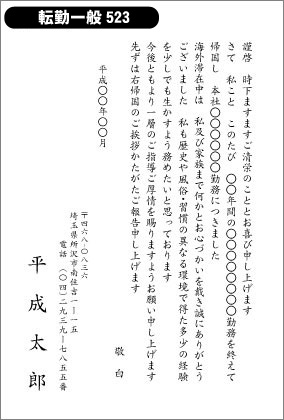 転勤一般 523
謹啓　時下ますますご清栄のこととお喜び申し上げます
さて　私こと　このたび　〇〇年間の〇〇〇〇〇〇〇勤務を終えて
帰国し　本社〇〇〇〇〇〇勤務につきました
海外滞在中は　私及び家族まで何かとお心づかいを戴き誠にありがとう
ございました　私も歴史や風俗・習慣の異なる環境で得た多少の経験
を少しでも生かすよう務めたいと思っております
今後ともより一層のご指導ご厚情を賜りますようお願い申し上げます
先ずは右帰国のご挨拶かたがたご報告申し上げます
敬白
平成〇〇年〇〇月
〒四六八-〇八三六
埼玉県所沢市南住吉一-一五
電話　(〇四)二九三九-七八五五番
平成太郎